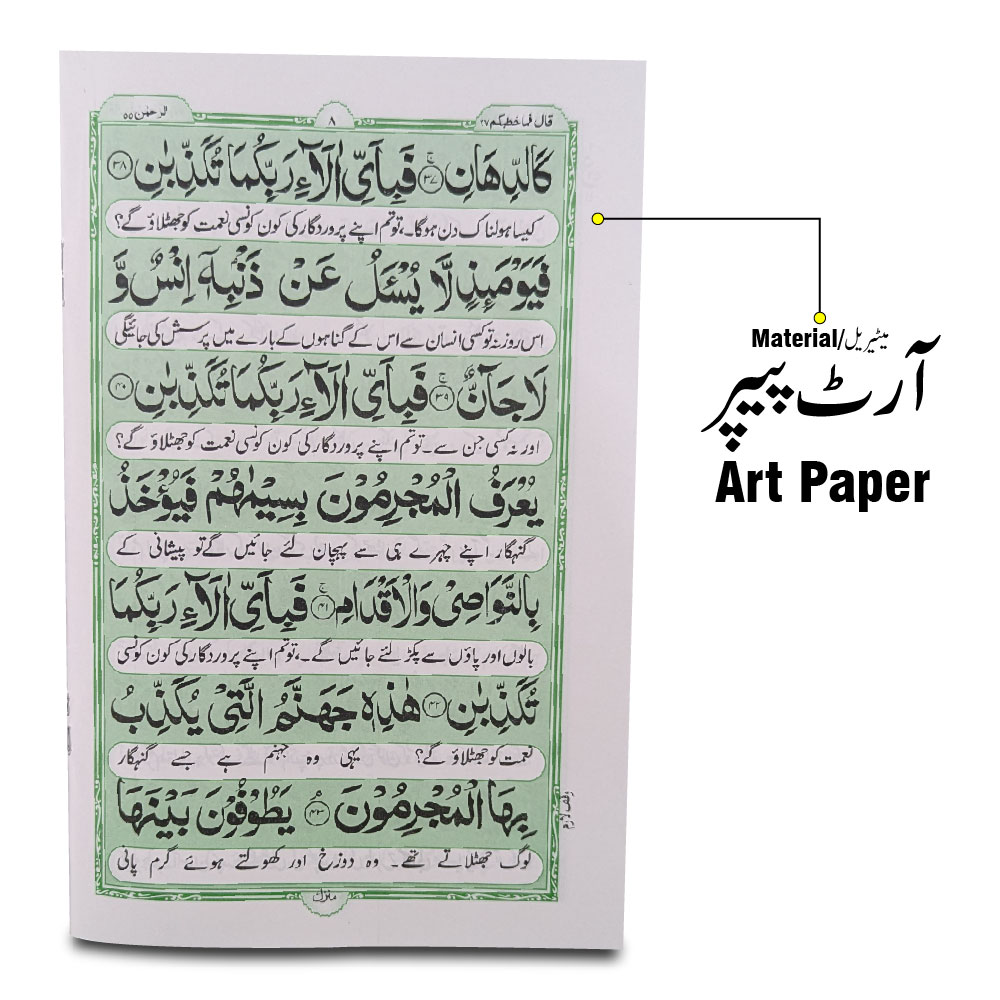 قال فما خطبکم ۲۷
۸
الرحمٰن ۵۵
كَالدِّهَانِ ۚ﴿۳۷﴾ فَبِاَىِّ اٰلَآءِ رَبِّكُمَا تُكَذِّبٰنِ ﴿۳۸﴾
کیسا ہولناک دن ہوگا۔، تو تم اپنے پروردگار کی کون کونسی نعمت کو جھٹلاؤ گے؟
فَيَوْمَئِذٍ لَّا يُسْـَٔلُ عَنْ ذَنْۢبِهٖۤ اِنْسٌ وَّ
اس روز نہ تو کسی انسان سے اس کے گناہوں کے بارے میں پرسش کی جائیگی
لَا جَآنٌّ ۚ﴿۳۹﴾ فَبِاَىِّ اٰلَآءِ رَبِّكُمَا تُكَذِّبٰنِ ﴿۴۰﴾
اور نہ کسی جن سے۔ تو تم اپنے پروردگار کی کون کونسی نعمت کو جھٹلاؤ گے؟
يُعْرَفُ الْمُجْرِمُوْنَ بِسِيْمٰهُمْ فَيُؤْخَذُ
گنہگار اپنے چہرے ہی سے پہچان لئے جائیں گے تو پیشانی کے
بِالنَّوَاصِىْ وَالْاَقْدَامِ ۚ﴿۴۱﴾ فَبِاَىِّ اٰلَآءِ رَبِّكُمَا
بالوں اور پاؤں سے پکڑ لئے جائیں گے۔، تو تم اپنے پروردگار کی کون کونسی
تُكَذِّبٰنِ ﴿۴۲﴾ هٰذِهٖ جَهَنَّمُ الَّتِىْ يُكَذِّبُ
نعمت کو جھٹلاؤ گے؟ یہی وہ جہنم ہے جسے گنہگار
بِهَا الْمُجْرِمُوْنَ ۘ﴿۴۳﴾ يَطُوْفُوْنَ بَيْنَهَا
لوگ جھٹلاتے تھے۔ وہ دوزخ اور کھولتے ہوئے گرم پانی
وقف لازم
منزل
میٹیریل/Material
آرٹ پیپر
Art Paper